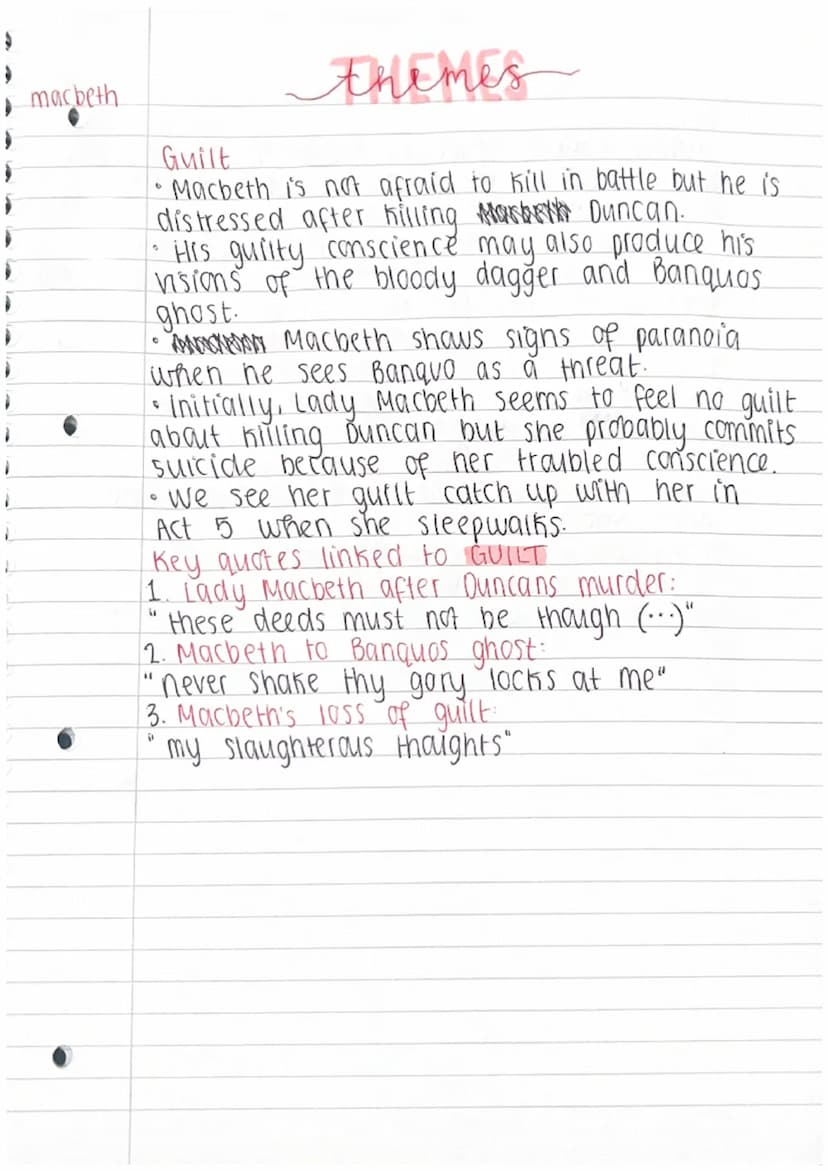 THEMES
themes
macbeth
Guilt
• Macbeth is not afraid to kill in battle but he is
distressed after killing Duncan.
• His guilty conscience may also produce his
visions of the bloody dagger and Banquos
ghost.
• Macbeth shows signs of paranoia
when he sees Banquo as a threat.
• Initially, Lady Macbeth seems to feel no guilt
about killing Duncan but she probably commits
suicide because of her troubled conscience.
• We see her guilt catch up with her in
Act 5 when she sleepwalks.
Key quotes linked to GUILT
1. Lady Macbeth after Duncans murder:
"these deeds must not be though (...)"
2. Macbeth to Banquos ghost:
"never shake thy gory locks at me"
3. Macbeth's loss of guilt:
"my slaughterous thoughts"